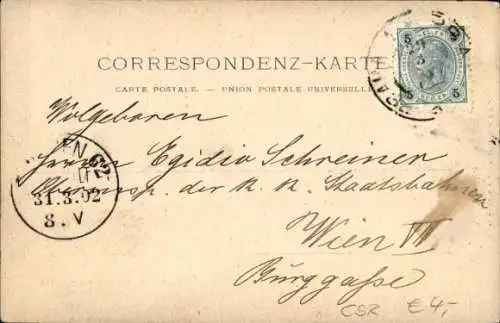 CORRESPONDENZ-KARTE
CARTE POSTALE. – UNION POSTALE UNIVERSELLE
5 5
5 5
Wolgeboren
Herrn Egidio Schreiner
der K. K. Staatsbahnen
Wien VII
Burggaße
EN 62
31.3.02
8. V
CSR €4,-